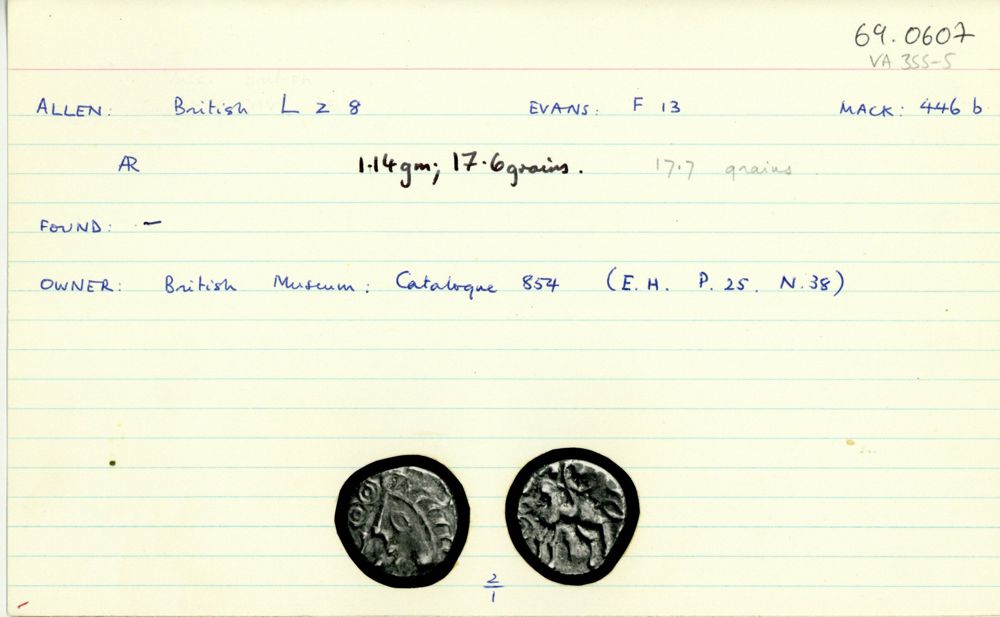 69.0607
VA 355-5
ALLEN: British L Z 8 EVANS: F 13 MACK: 446 b
AR 1.14gm; 17.6grains. 17.7 grains
FOUND: —
OWNER: British Museum: Catalogue 854 (E.H. P.25. N.38)
2
1